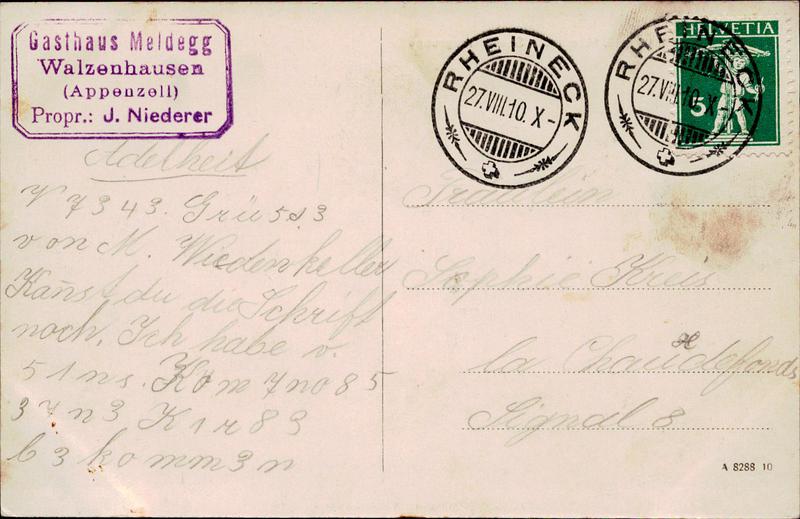 Gasthaus Meldegg
Walzenhausen
(Appenzell)
Propr.: J. Niederer
RHEINECK
27.VIII.10. X-
RHEINECK
27.VIII.10. X-
HELVETIA
5
Adelheit
V 7343. Grü5s3
von M. Wiedenkeller
Kan̄st du die Schrift
noch. Ich habe v.
51ns. Kom7no85
37n3 K1r83
b3komm3n
Fräulein
Sophie Kreis
la Chauxdefonds
Signal 8
A 8288 10